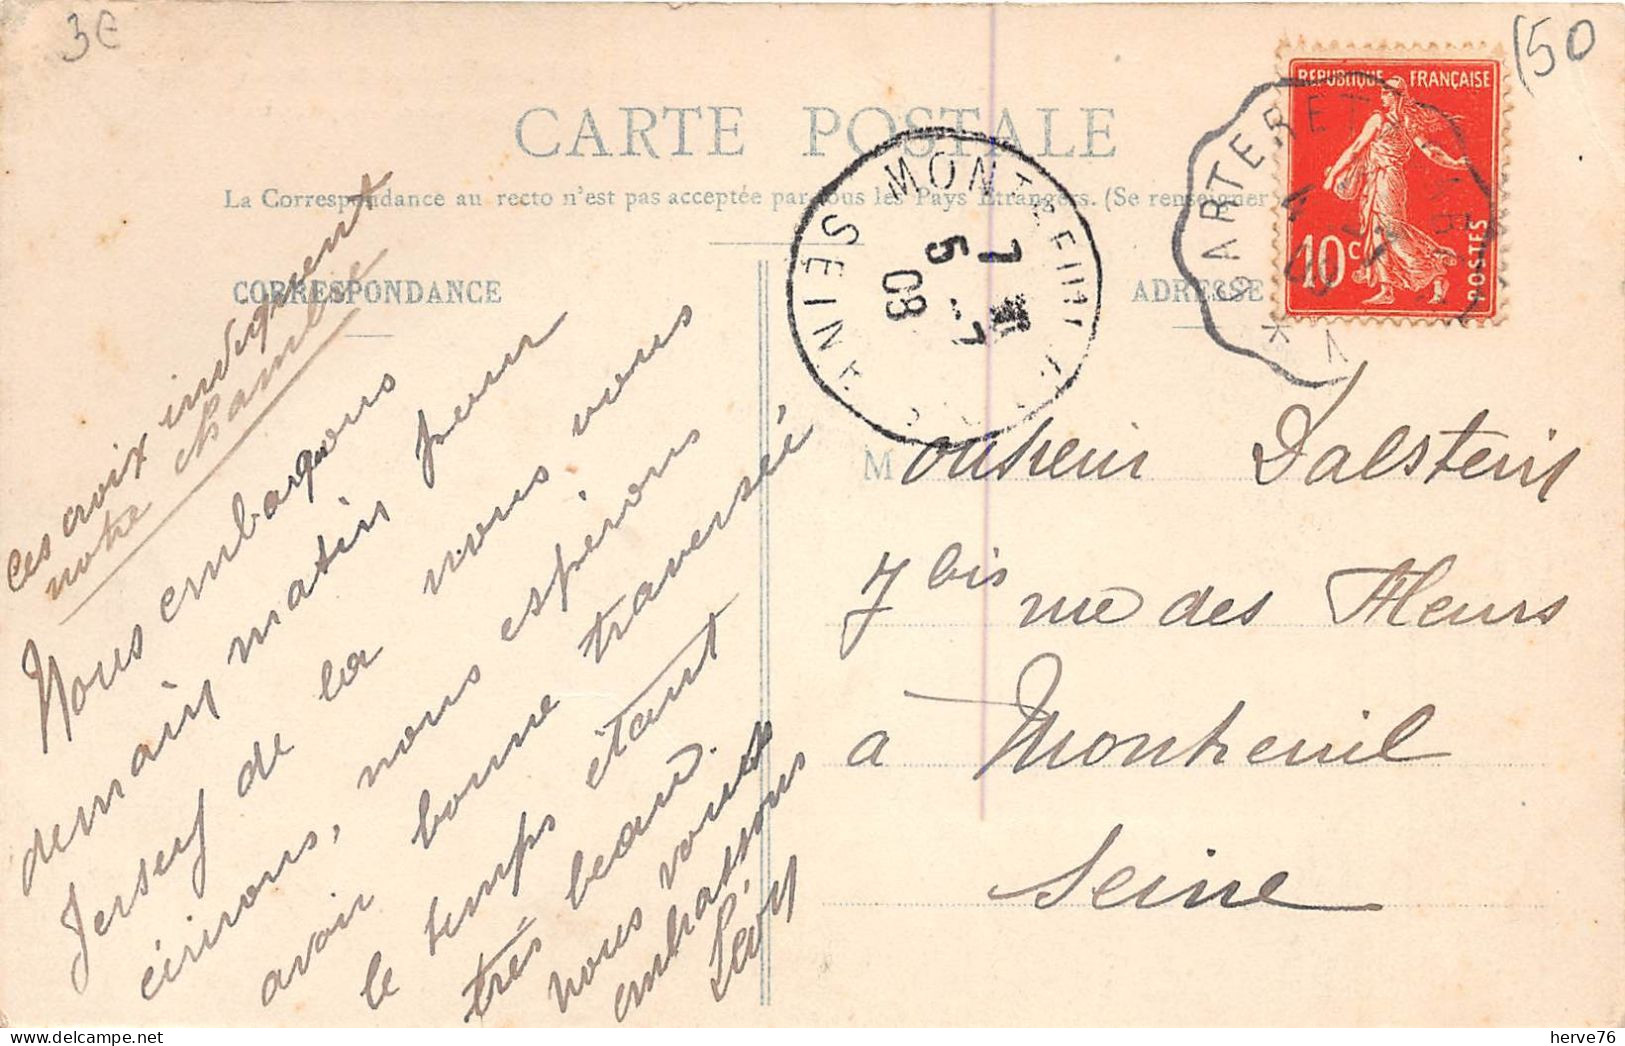 3€
150
REPUBLIQUE FRANÇAISE
10c
POSTES
CARTERET
1
CARTE POSTALE
La Correspondance au recto n'est pas acceptée par tous les Pays Étrangers. (Se renseigner
MONTREUIL
SEINE
7
5 -7
09
CORRESPONDANCE
ADRESSE
ces croix indiquent
notre chambre
Nous embarquons
demain matin pour
Jersey de la nous vous
écrirons, nous espérons
avoir bonne traversée
le temps étant
très beau.
nous vous
embrassons
Lévy
Monsieur Dalstein
7 bis rue des Fleurs
à Montreuil
Seine
herve76